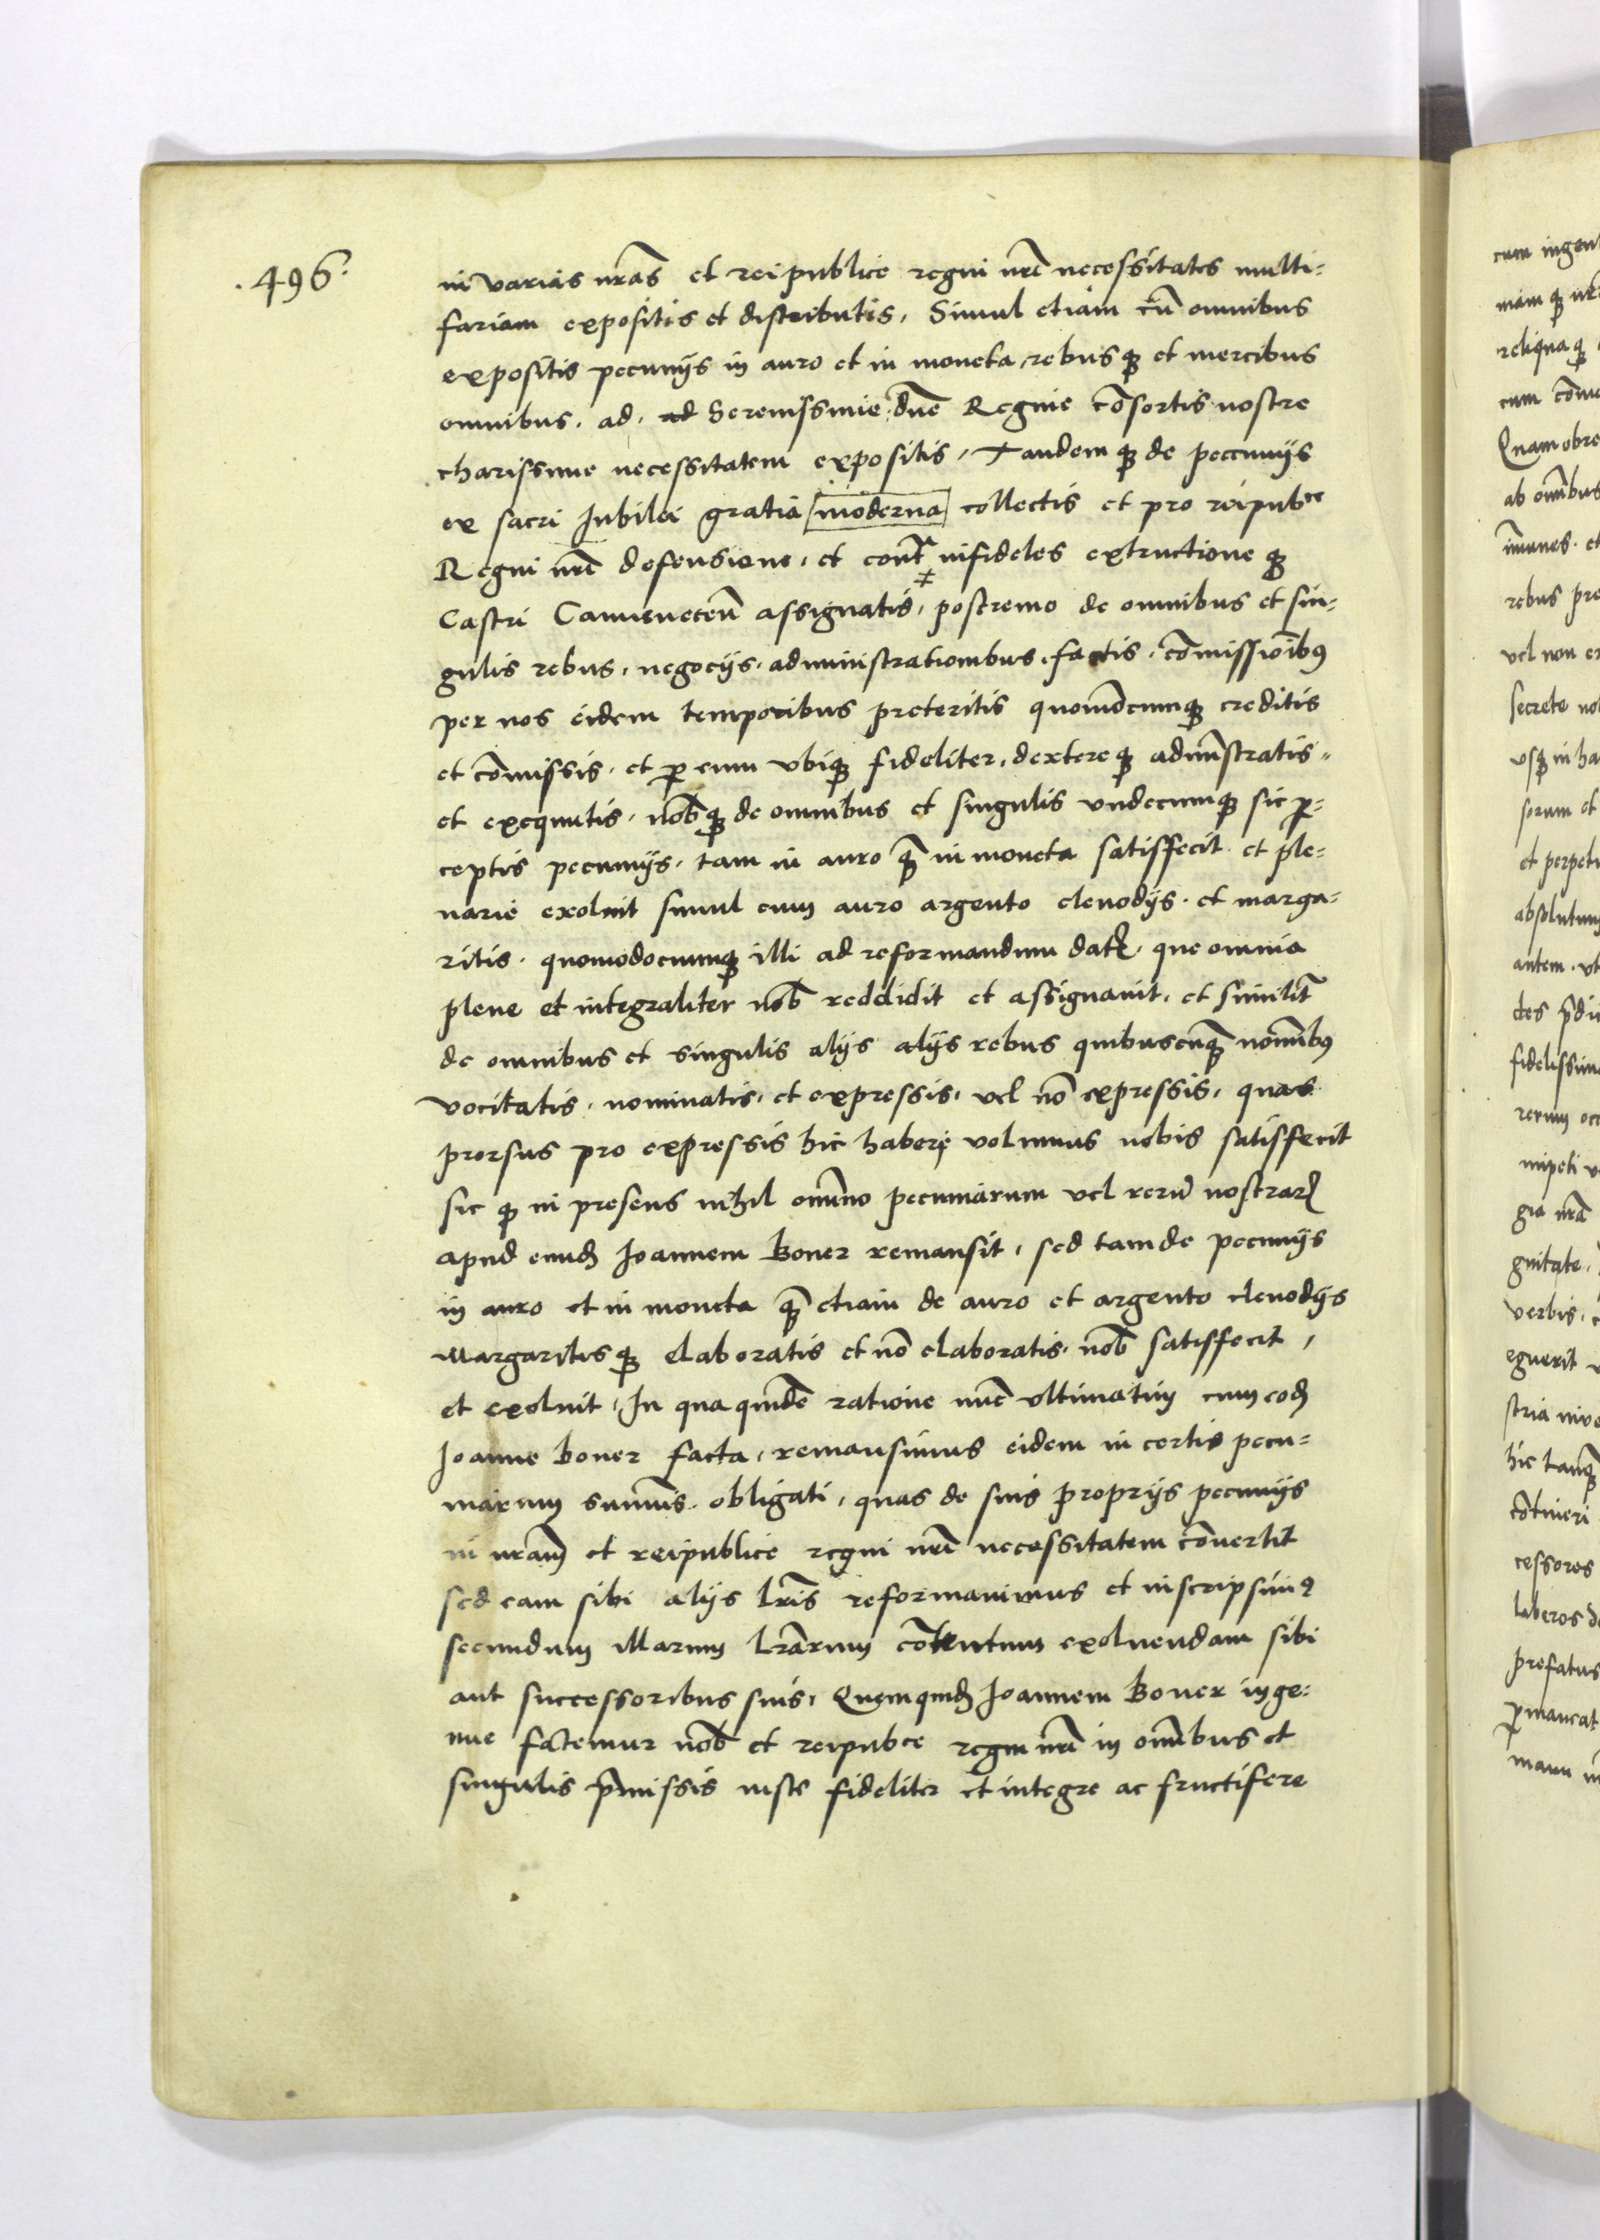 .496.
in varias nras et reipublice regni nri necessitates multi=
fariam expositis et distributis, Simul etiam cu omnibus
expositis pecunijs in auro et in moneta, rebusq et mercibus
omnibus, ad, ad Serenissimie dne Regine cosortis nostre
charissime necessitatem expositis, Tandem q de peccunijs
ex sacri Jubilei gratia moderna collectis et pro reipubce
Regni nri defensione, et cont infideles extructione q
Castri Camienecen assignatis, postremo de omnibus et sin=
gulis rebus, negocijs, administrationibus, factis, comissioib9
per nos eidem temporibus preteritis quomocunq creditis
et comissis, et p eum ubiq fideliter, dextere q administratis
et exequutis, nob q de omnibus et singulis undecumq sic p=
ceptis pecunijs, tam in auro q in moneta satisfecit et ple=
narie exoluit simul cum auro argento clenodijs et marga=
ritis, quomodocumq illi ad reformandum dat, que omnia
plene et integraliter nob reddidit et assignauit, et similit
de omnibus et singulis alijs alijs rebus quibuscuq nomib9
vocitatis, nominatis, et expressis, vel no expressis, quas
prorsus pro expressis hic haberi volumus nobis satisfecit
sic q in presens nihil omino pecuniarum vel reru nostrar
apud eund Joannem Boner remansit, sed tam de pecunijs
in auro et in moneta q etiam de auro et argento clenodijs
Margaritis q elaboratis et no elaboratis, nob satisfecit,
et exoluit, In qua quide ratione nuc ultimatim cum eod
Joanne boner facta, remansimus eidem in certis pecu=
niarum sumis obligati, quas de suis proprijs pecunijs
in nram et reipublice regni nri necessitatem couertit
sed eam sibi alijs lris reformauimus et inscripsim9
secundum illarum lrarum cotentum exoluendam sibi
aut successoribus suis, Quemquid Joannem Boner inge=
nue fatemur nob et reipubce regni nri in omibus et
singulis pmissis iuste fideliter et integre ac fructifere
cum ingen
reliqua q
Quamobre
ab omibus
imunes, et
rebus pre
vel non ex
secrete no
usq in ha
sorum et
et perpetu
absolutum
autem, ut
fidelissim
gia nra
gnitate,
verbis,
hic tanq
cotineri
cessores
prefatus
pmaneat